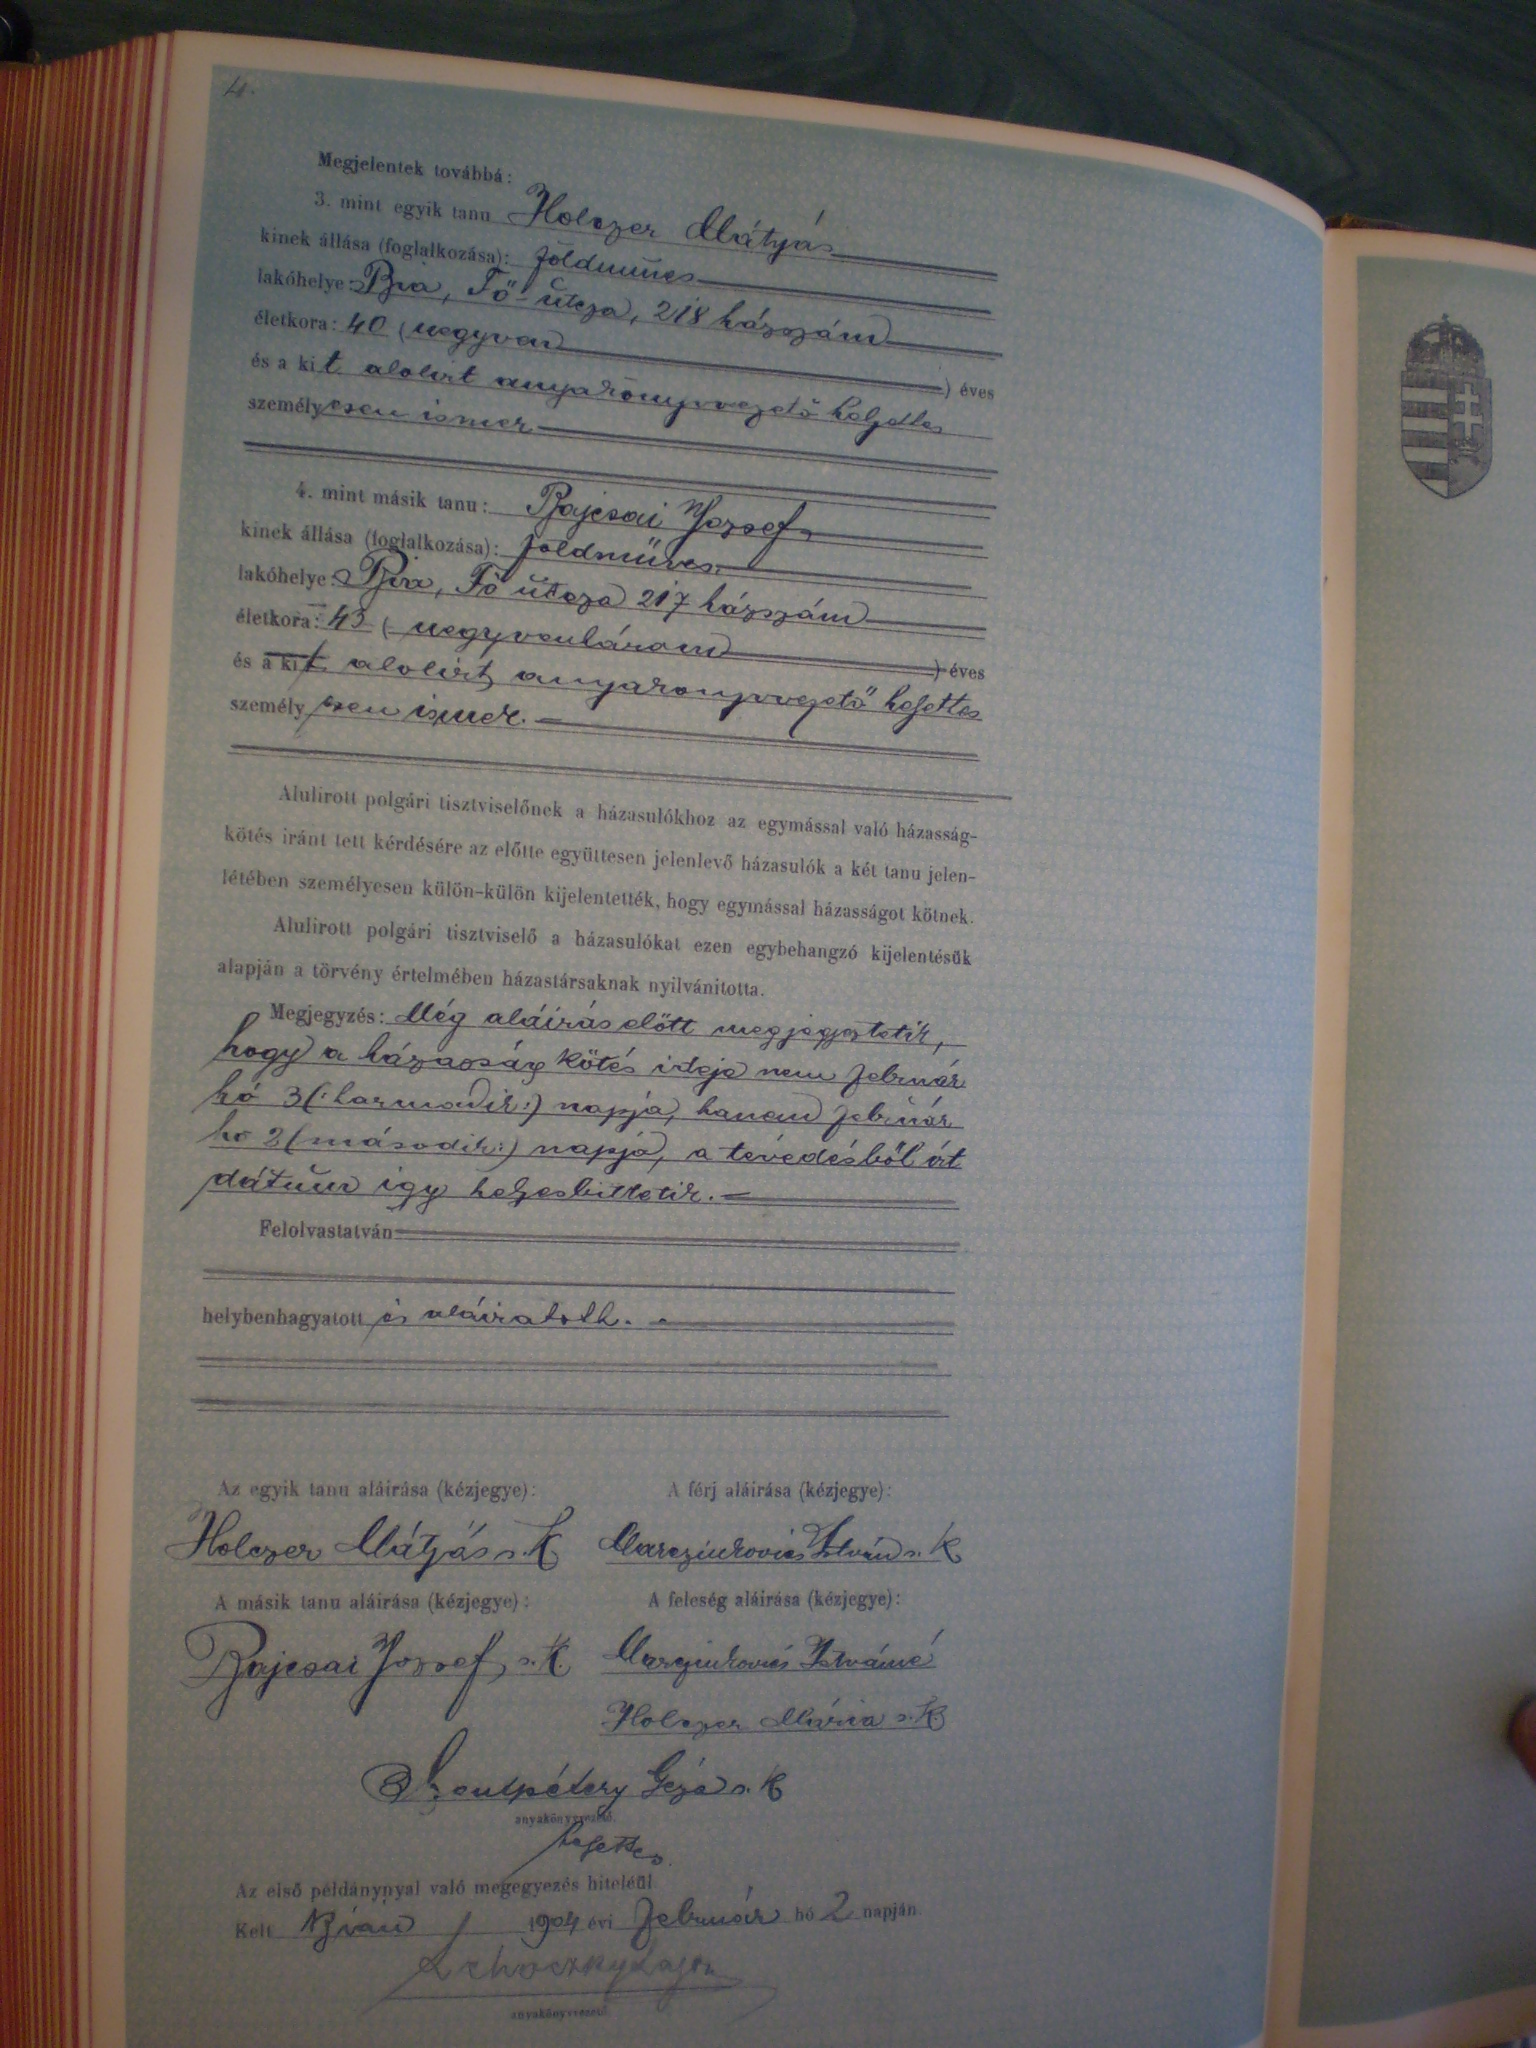 4.
Megjelentek továbbá:
3. mint egyik tanu Holczer Mátyás
kinek állása (foglalkozása): földmües
lakóhelye: Bia, Fő-utcza, 218 házszám
életkora: 40 (negyven) éves
és a kit alolirt anyakönyvvezető helyettes
személyesen ismer
4. mint másik tanu: Bajcsai József
kinek állása (foglalkozása): földműves
lakóhelye: Bia, Fő utcza 217 házszám
életkora: 43 (negyvenhárom) éves
és a kit alolirt anyakönyvvezető helyettes
személyesen ismer.
Alulirott polgári tisztviselőnek a házasulókhoz az egymással való házasság-
kötés iránt tett kérdésére az előtte együttesen jelenlevő házasulók a két tanu jelen-
létében személyesen külön-külön kijelentették, hogy egymással házasságot kötnek.
Alulirott polgári tisztviselő a házasulókat ezen egybehangzó kijelentésük
alapján a törvény értelmében házastársaknak nyilvánitotta.
Megjegyzés: Még aláirás előtt megjegyeztetik,
hogy a házasság kötés ideje nem február
hó 3 (:harmadik:) napja, hanem február
hó 2 (második:) napja, a tévedésből írt
dátum igy helyesbittetik.
Felolvastatván
helybenhagyatott és aláiratott.
Az egyik tanu aláirása (kézjegye): A férj aláirása (kézjegye):
Holczer Mátyás s. k. Marczinkovics István s. k.
A másik tanu aláirása (kézjegye): A feleség aláirása (kézjegye):
Bajcsai József s. k. Marczinkovics Istvánné
Holczer Mária s. k.
Szentpétery Géza s. k.
anyakönyvvezető
helyettes
Az első példánynyal való megegyezés hiteléül
Kelt Bián 1904 évi február hó 2 napján
Lehoczky Lajos
anyakönyvvezető